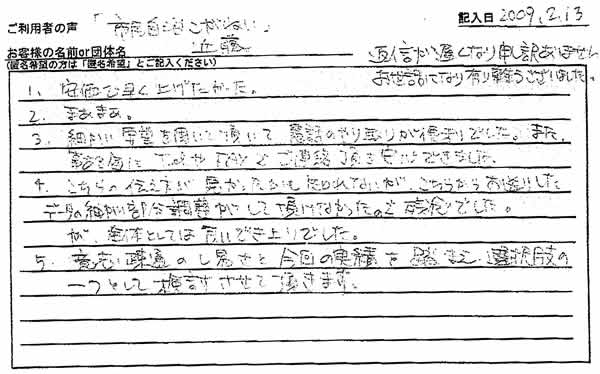 ご利用者の声 「市民自治こがねい」 記入日 2009.2.13
お客様の名前or団体名 近藤
(匿名希望の方は「匿名希望」とご記入ください)
返信が遅くなり申訳ありません
お世話になり有り難うございました。
1. 安価で早く上げたかった。
2. まあまあ。
3. 細かい要望を聞いて頂いて 電話のやり取りが便利でした。また、
動きを毎に TelやFAXでご連絡頂き安心できました
4. こちらの伝え方が悪かったかも知れないが、こちらからお送りした
データの細かい部分調整がして頂けなかったのと残念でした。
が、全体としては良いでき上りでした。
5. 意志疎通のし易さと今回の実績を踏まえ、選択肢の
一つとして検討させて頂きます。